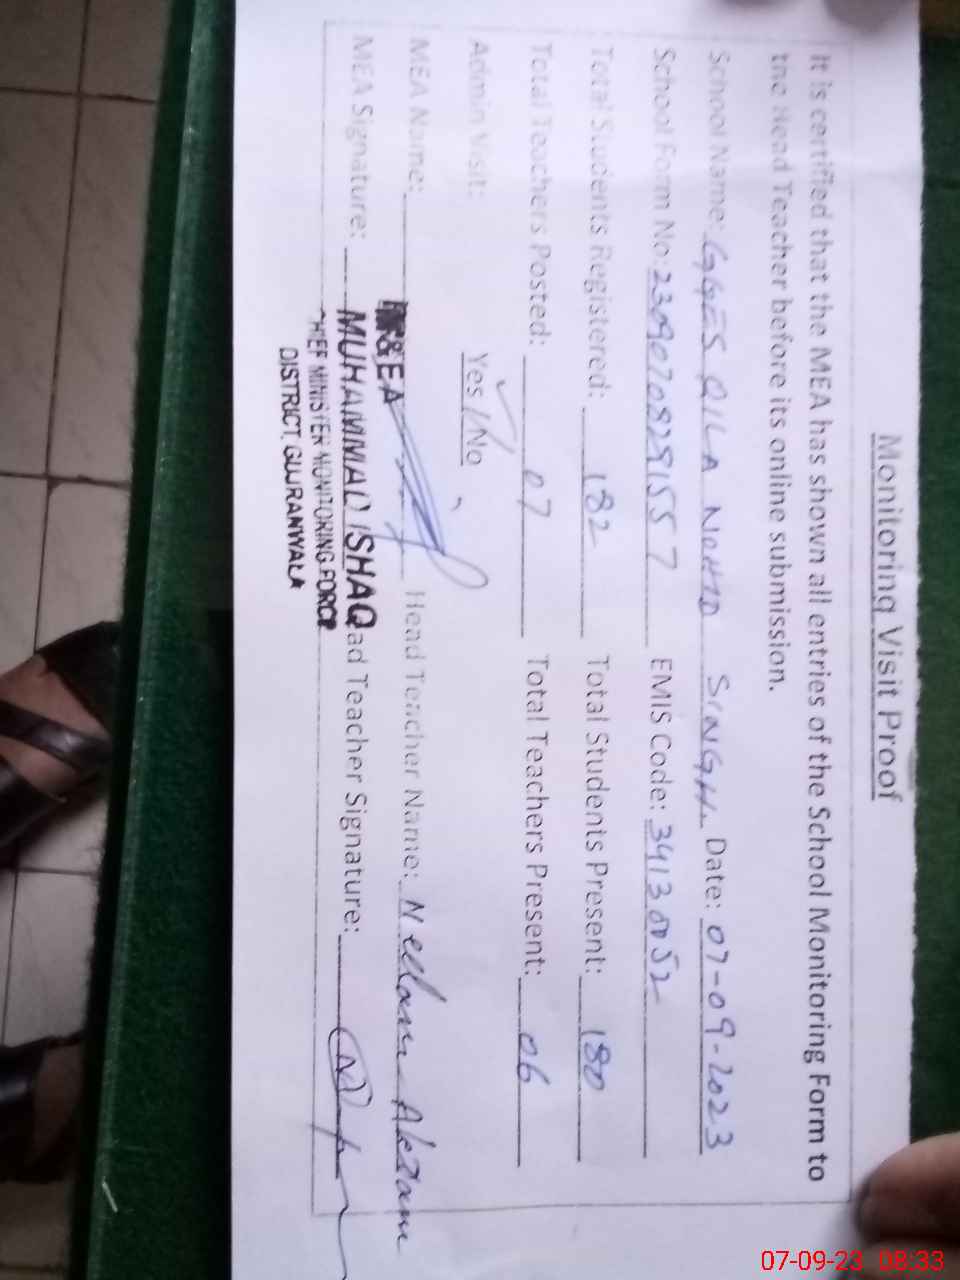 Monitoring Visit Proof
It is certified that the MEA has shown all entries of the School Monitoring Form to
the Head Teacher before its online submission.
School Name: GGES QILA NOHD SINGH. Date: 07-09-2023
School Form No: 2309070829155 7 EMIS Code: 34130052
Total Students Registered: 182 Total Students Present: 180
Total Teachers Posted: 07 Total Teachers Present: 06
Admin Visit: Yes / No
MEA Name: Head Teacher Name: Neelam Akram
M&EA
MEA Signature: MUHAMMAD ISHAQ ad Teacher Signature:
CHIEF MINISTER MONITORING FORCE
DISTRICT, GUJRANWALA
07-09-23 08:33